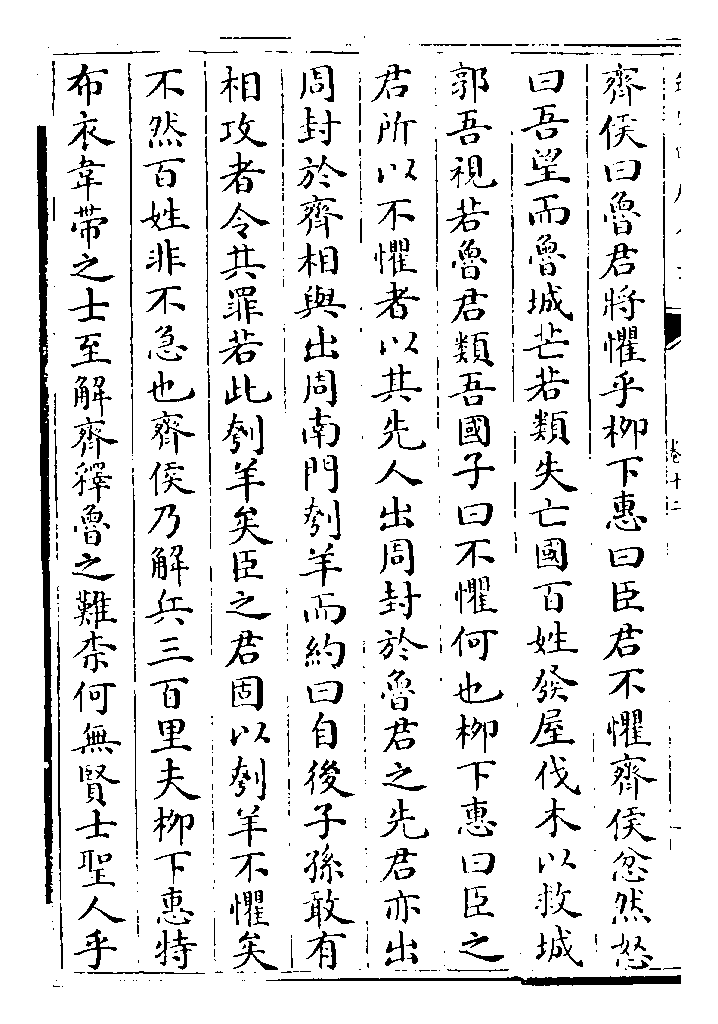 齊侯曰魯君將懼乎柳下惠曰臣君不懼齊侯忿然怒
曰吾望而魯城芒若類失亡國百姓發屋伐木以救城
郭吾視若魯君類吾國子曰不懼何也柳下惠曰臣之
君所以不懼者以其先人出周封於魯君之先君亦出
周封於齊相與出周南門刳羊而約曰自後子孫敢有
相攻者令其罪若此刳羊矣臣之君固以刳羊不懼矣
不然百姓非不急也齊侯乃解兵三百里夫柳下惠特
布衣韋帶之士至解齊釋魯之難柰何無賢士聖人乎
卷十二